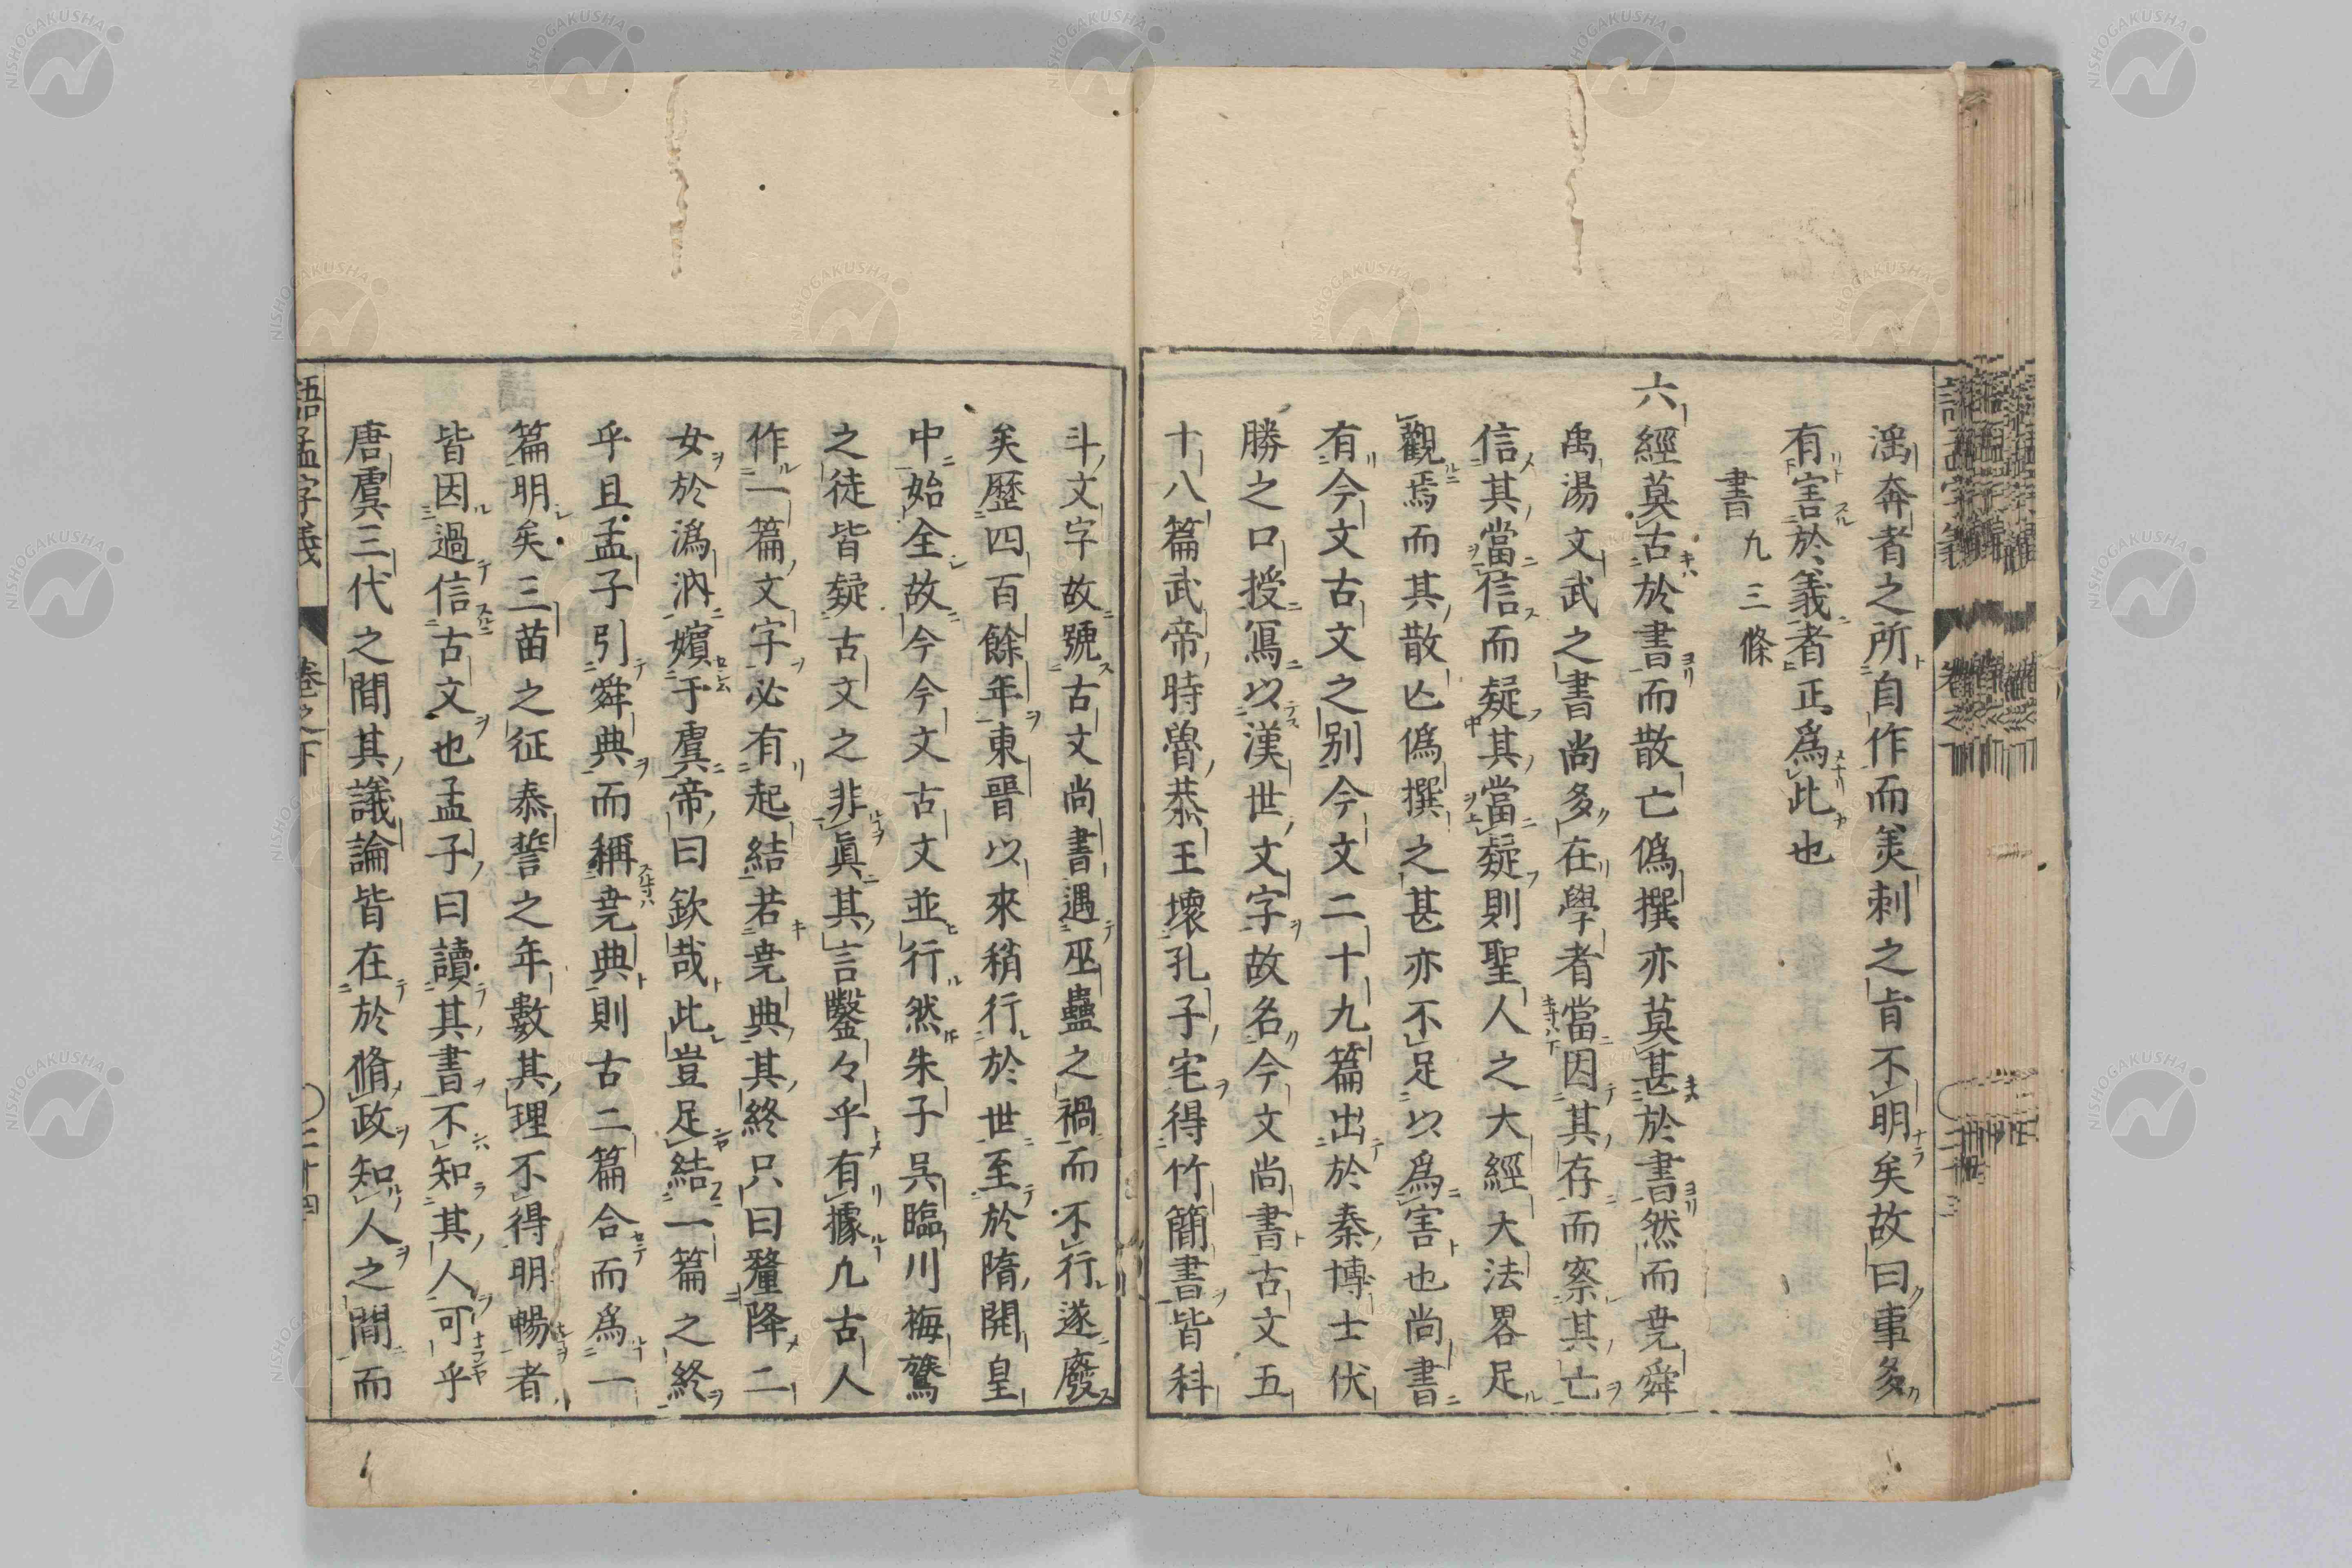 淫奔者之所自作而美刺之旨不明矣故曰事多
有害於義者正爲此也
書 凡三條
六經莫古於書而散亡僞撰亦莫甚於書然而堯舜
禹湯文武之書尚多在學者當因其存而察其亡
信其當信而疑其當疑則聖人之大經大法畧足
觀焉而其散亡僞撰之甚亦不足以爲害也尚書
有今文古文之別今文二十九篇出於秦博士伏
勝之口授寫以漢世文字故名今文尚書古文五
十八篇武帝時魯恭王壞孔子宅得竹簡書皆科
斗文字故號古文尚書遇巫蠱之禍而不行遂廢
矣歷四百餘年東晉以來稍行於世至於隋開皇
中始全故今今文古文並行然朱子呉臨川梅鷟
之徒皆疑古文之非眞其言鑿々乎有據凡古人
作一篇文字必有起結若堯典其終只曰釐降二
女於潙汭嬪于虞帝曰欽哉此豈足結一篇之終
乎且孟子引舜典而稱堯典則古二篇合而爲一
篇明矣三苗之征泰誓之年數其理不得明暢者
皆因過信古文也孟子曰讀其書不知其人可乎
唐虞三代之間其議論皆在於脩政知人之間而
語孟字義 卷之下 〇二十四